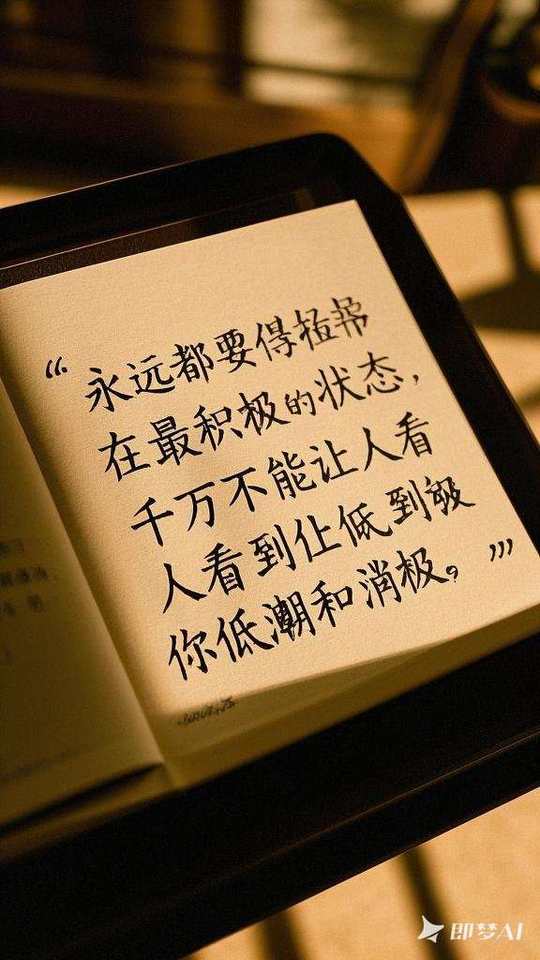 “永远都要得
在最积极的状态，
千万不能让人看
人看到让低到
你低潮和消极。”
即梦AI